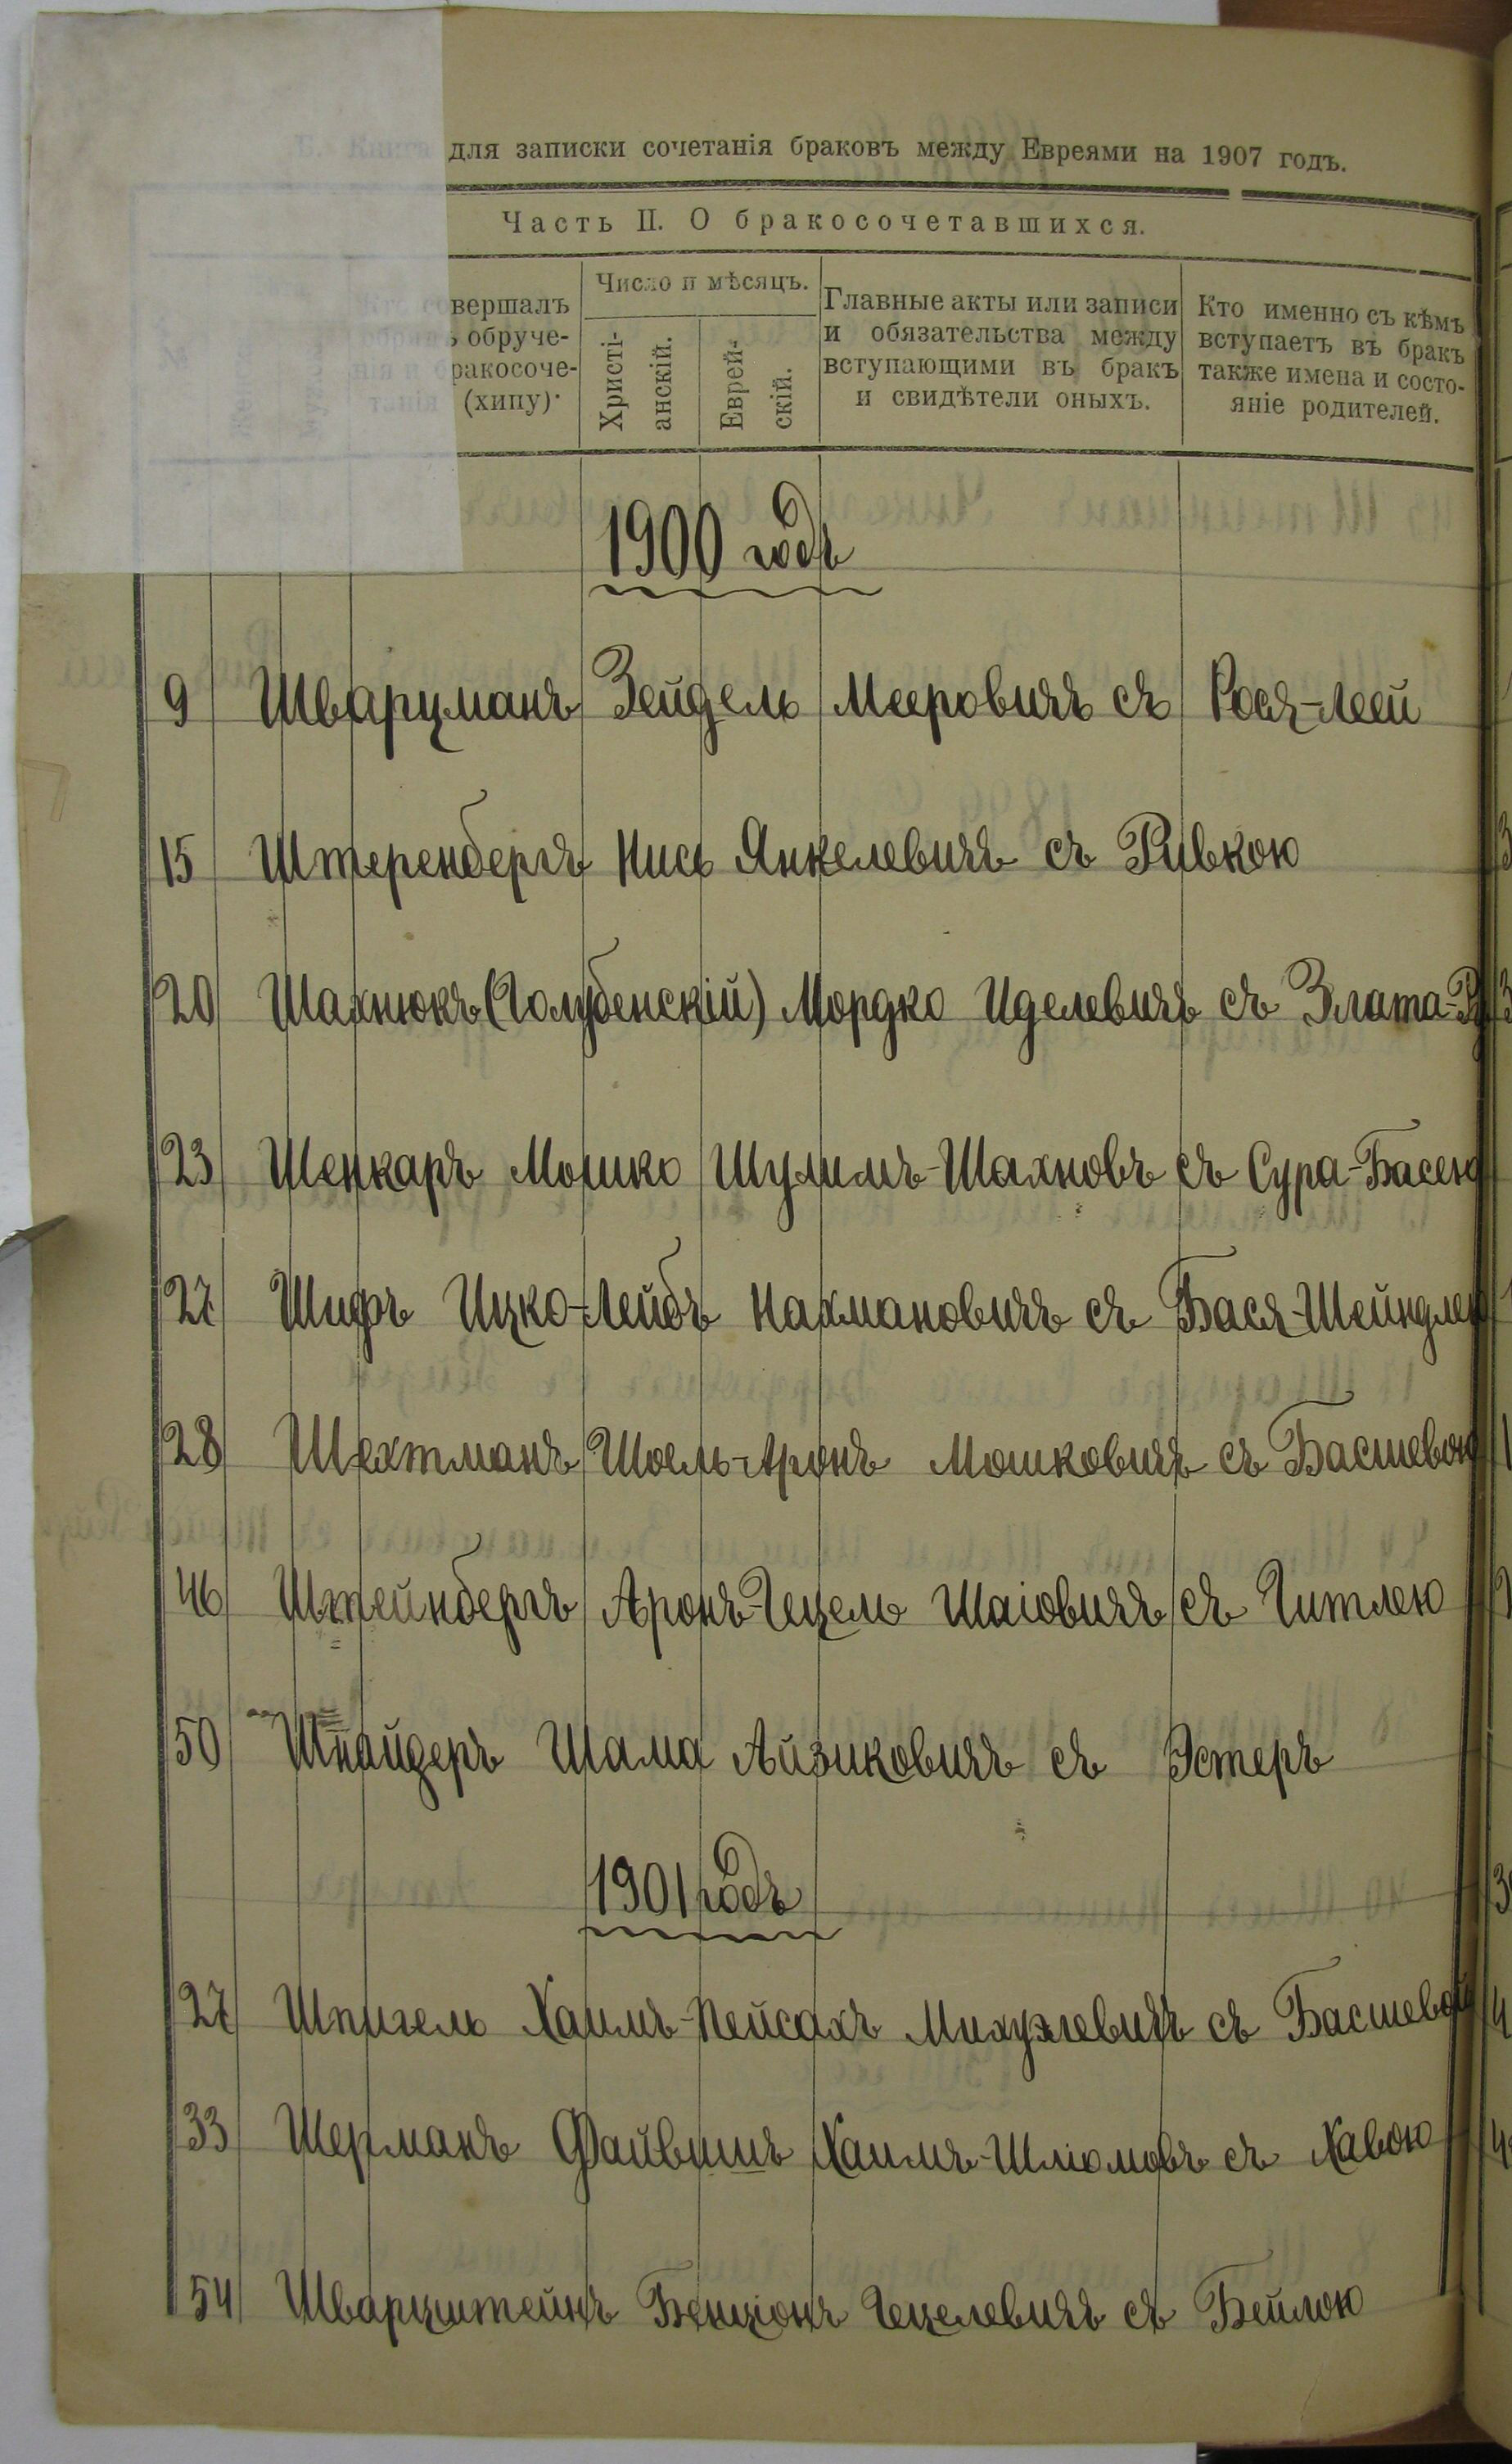 для записки сочетанія браковъ между Евреями на 1907 годъ.
Часть II. О бракосочетавшихся.
вершалъ
обруче-
ракосоче-
(хипу)
Число и мѣсяцъ.
Христі-
анскій.
Еврей-
скій.
Главные акты или записи
и обязательства между
вступающими въ бракъ
и свидѣтели оныхъ.
Кто именно съ кѣмъ
вступаетъ въ бракъ
также имена и состо-
яніе родителей.
1900 годъ
9 Шварцманъ Зейдель Мееровичъ съ Рося-Леей
15 Штеренбергъ Нись Янкелевичъ съ Ривкою
20 Шахнюкъ (Голубенскій) Мордко Иделевичъ съ Злата-
23 Шенкаръ Мошко Шулимъ-Шахновъ съ Сура-Басею
27 Шифъ Ицко-Лейбъ Нахмановичъ съ Бася-Шейндлею
28 Шехтманъ Шоель-Аронъ Мошковичъ съ Басшевою
46 Штейнбергъ Аронъ-Гецель Шаіовичъ съ Гитлею
50 Шнайдеръ Шама Айзиковичъ съ Эстеръ
1901 годъ
27 Шпигель Хаимъ-Пейсахъ Михуэлевичъ съ Басшевой
33 Шерманъ Файвишъ Хаимъ-Шліомовъ съ Хавою
54 Шварцштейнъ Бенціонъ Гецелевичъ съ Бейлою